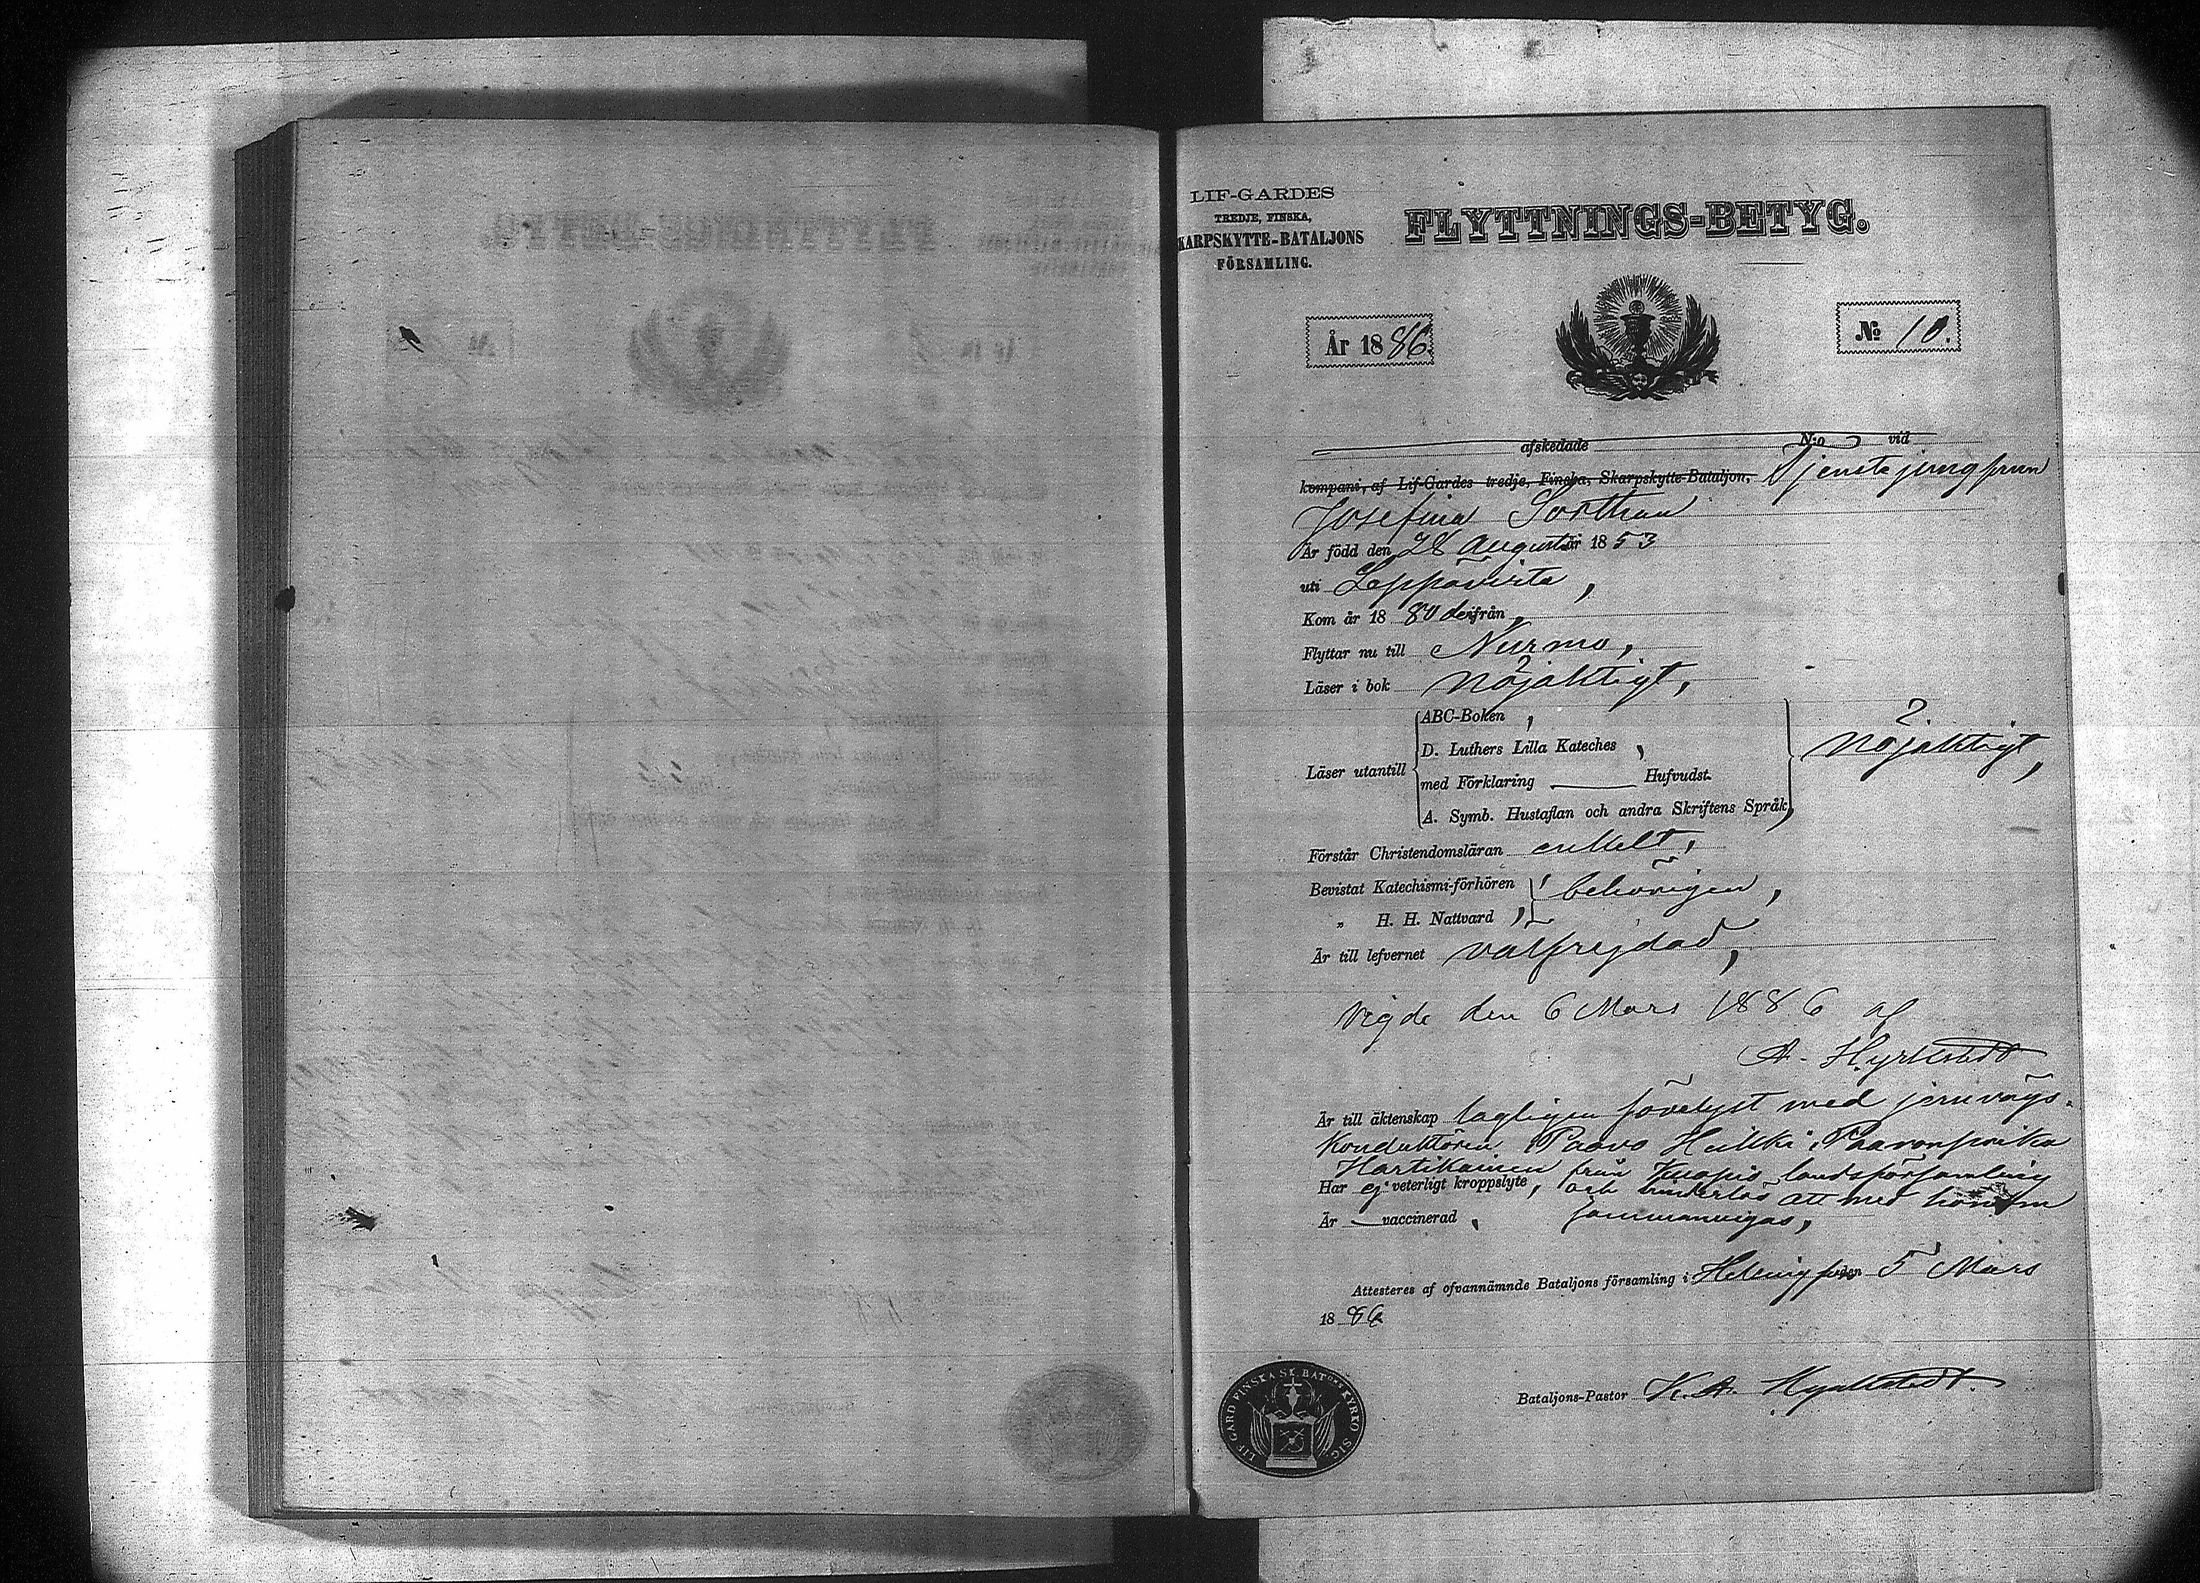 LIF-GARDES
TREDJE, FINSKA,
KARPSKYTTE-BATALJONS
FÖRSAMLING.
FLYTTNINGS-BETYG.
År 1886.
№ 10.
afskedade N:o vid
kompani, af Lif-Gardes tredje, Finska, Skarpskytte-Bataljon, Tjenstejungfrun
Josefina Sorthan
Är född den 28 Augusti år 1853
uti Leppävirta,
Kom år 1880 derifrån,
Flyttar nu till Nurmo,
Läser i bok nöjaktigt,
Läser utantill
ABC-Boken,
D. Luthers Lilla Kateches,
med Förklaring Hufvudst.
A. Symb. Hustaflan och andra Skriftens Språk,
nöjaktigt,
Förstår Christendomsläran enkelt,
Bevistat Katechismi-förhören
„ H. H. Nattvard,
behörigen,
Är till lefvernet välfrejdad,
Vigde den 6 Mars 1886 af
A. Hyrkstedt
Är till äktenskap lagligen förelyst med jernvägs-
Konduktören Paavo Heikki Paavonpoika
Hartikainen från Kuopio landsförsamling
Har ej veterligt kroppslyte, och hinderlös att med honom
Är vaccinerad, sammanvigas,
Attesteres af ofvannämnde Bataljons församling i Helsingfors den 5 Mars
1886
Bataljons-Pastor K. A. Hyrkstedt.
LIF GARD FINSKA SK. BAT. KYRKO SIG.